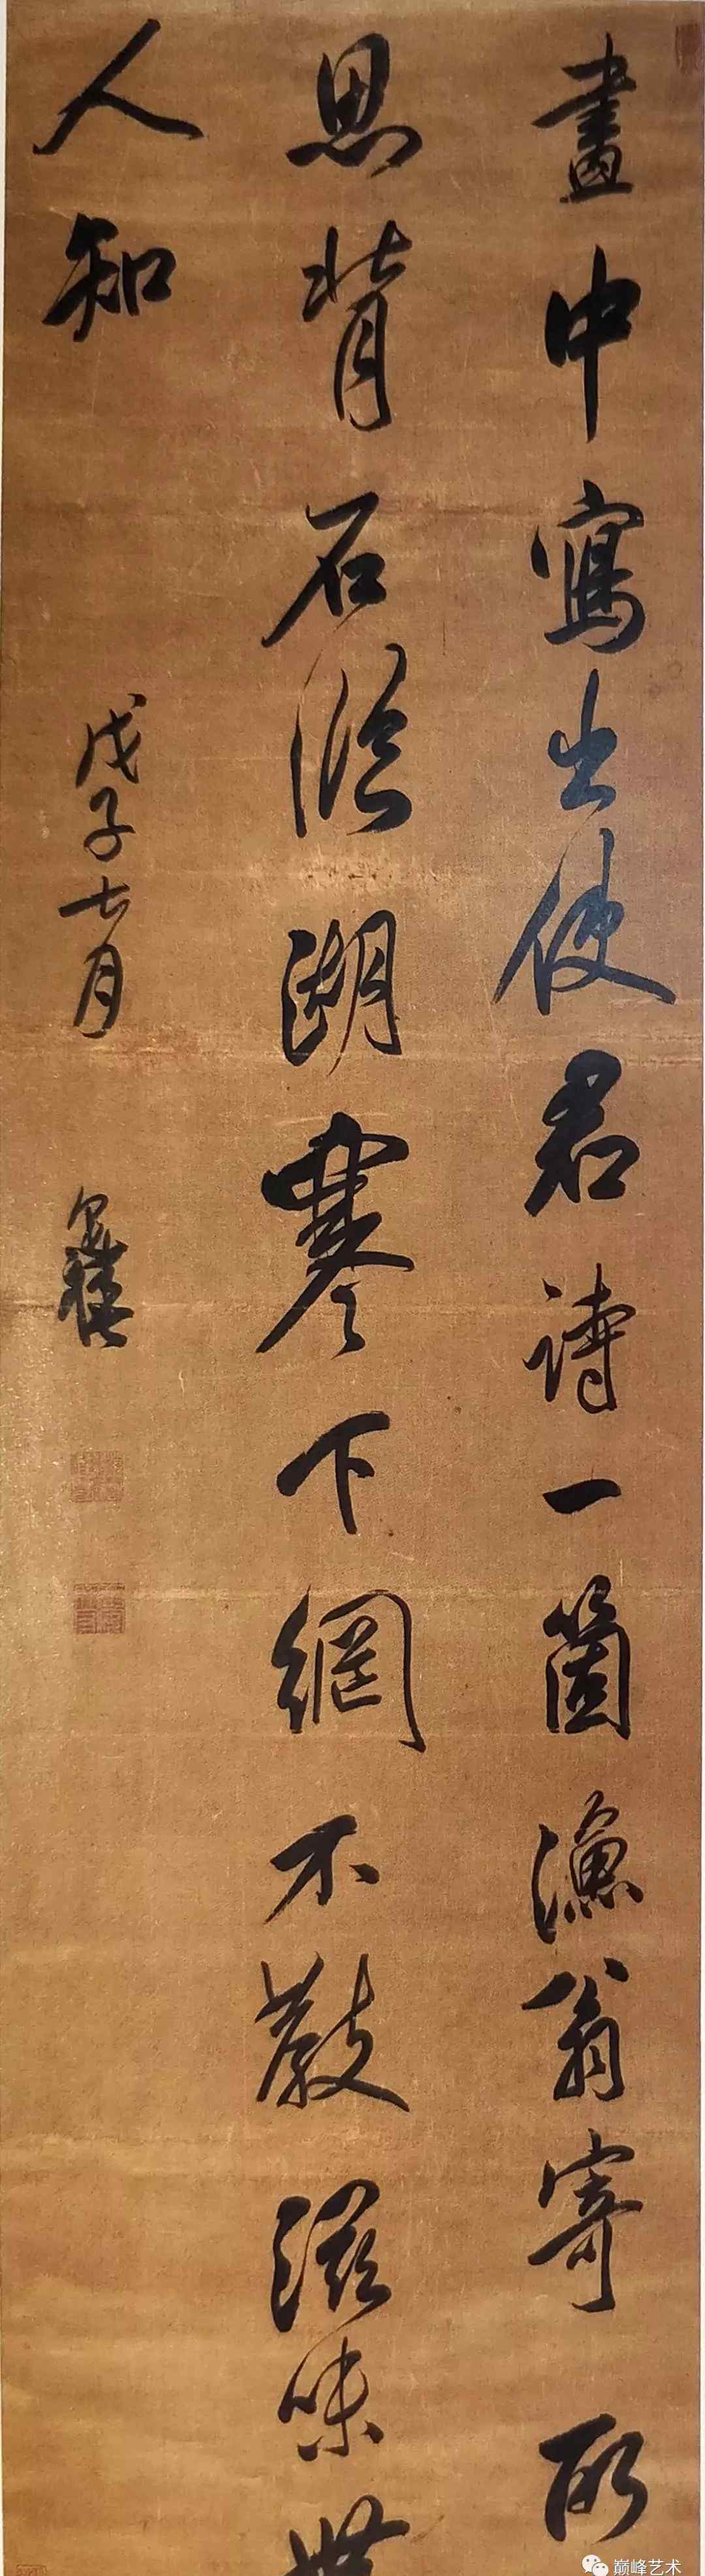 畫中寫出使君詩一箇漁翁寄所
思背石臨湖寒下網不教滋味世
人知
戊子七月
巅峰艺术